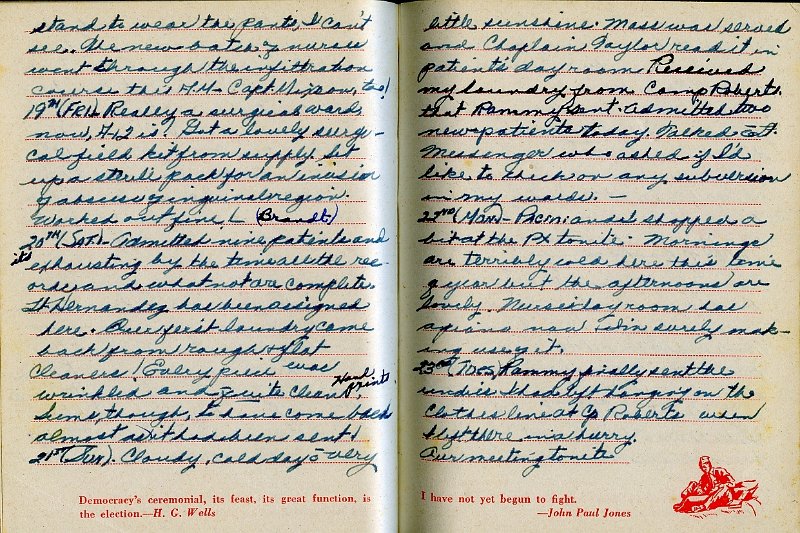 stand to wear the pants, I can't
see. The new batch of nurses
went through the infiltration
course this P.M. Capt. too!
19TH (FRI.) Really a surgical ward
now, F-12 is! Got a lovely surgi-
cal field kit from supply. Set
up a sterile pack for an incision
of abscess of inguinal region.
Worked out fine! (Brandt)
20TH (SAT.) - Admitted nine patients and
its exhausting by the time all the rec-
ords and what not are complete.
Lt Hernandez has been assigned
here. Our first laundry came
back from rough & flat
cleaners! Every piece was
wrinkled and quite clean. Hand prints,
Seems, though, to have come back
almost as it had been sent!
21ST (Sun). Cloudy, cold day c̄ very
little sunshine. Mass was served
and Chaplain Taylor read it in
patients' day room. Received
my laundry from Camp Roberts,
that Pammy sent. Admitted two
new patients today. Talked c̄ Lt.
Messenger who asked if I'd
like to check on any subversion
in my wards. —
22ND (Mon) - Pacini and I shopped a
bit at the PX tonite. Mornings
are terribly cold here this time
of year but the afternoons are
lovely. Nurses' day room has
a piano now & I'm surely mak-
ing use of it.
23RD (Tues) Pammy finally sent the
undies I had left hanging on the
clothes line at Cp Roberts when
I left there in a hurry.
Our meeting tonite
Democracy's ceremonial, its feast, its great function, is
the election.—H. G. Wells
I have not yet begun to fight.
—John Paul Jones